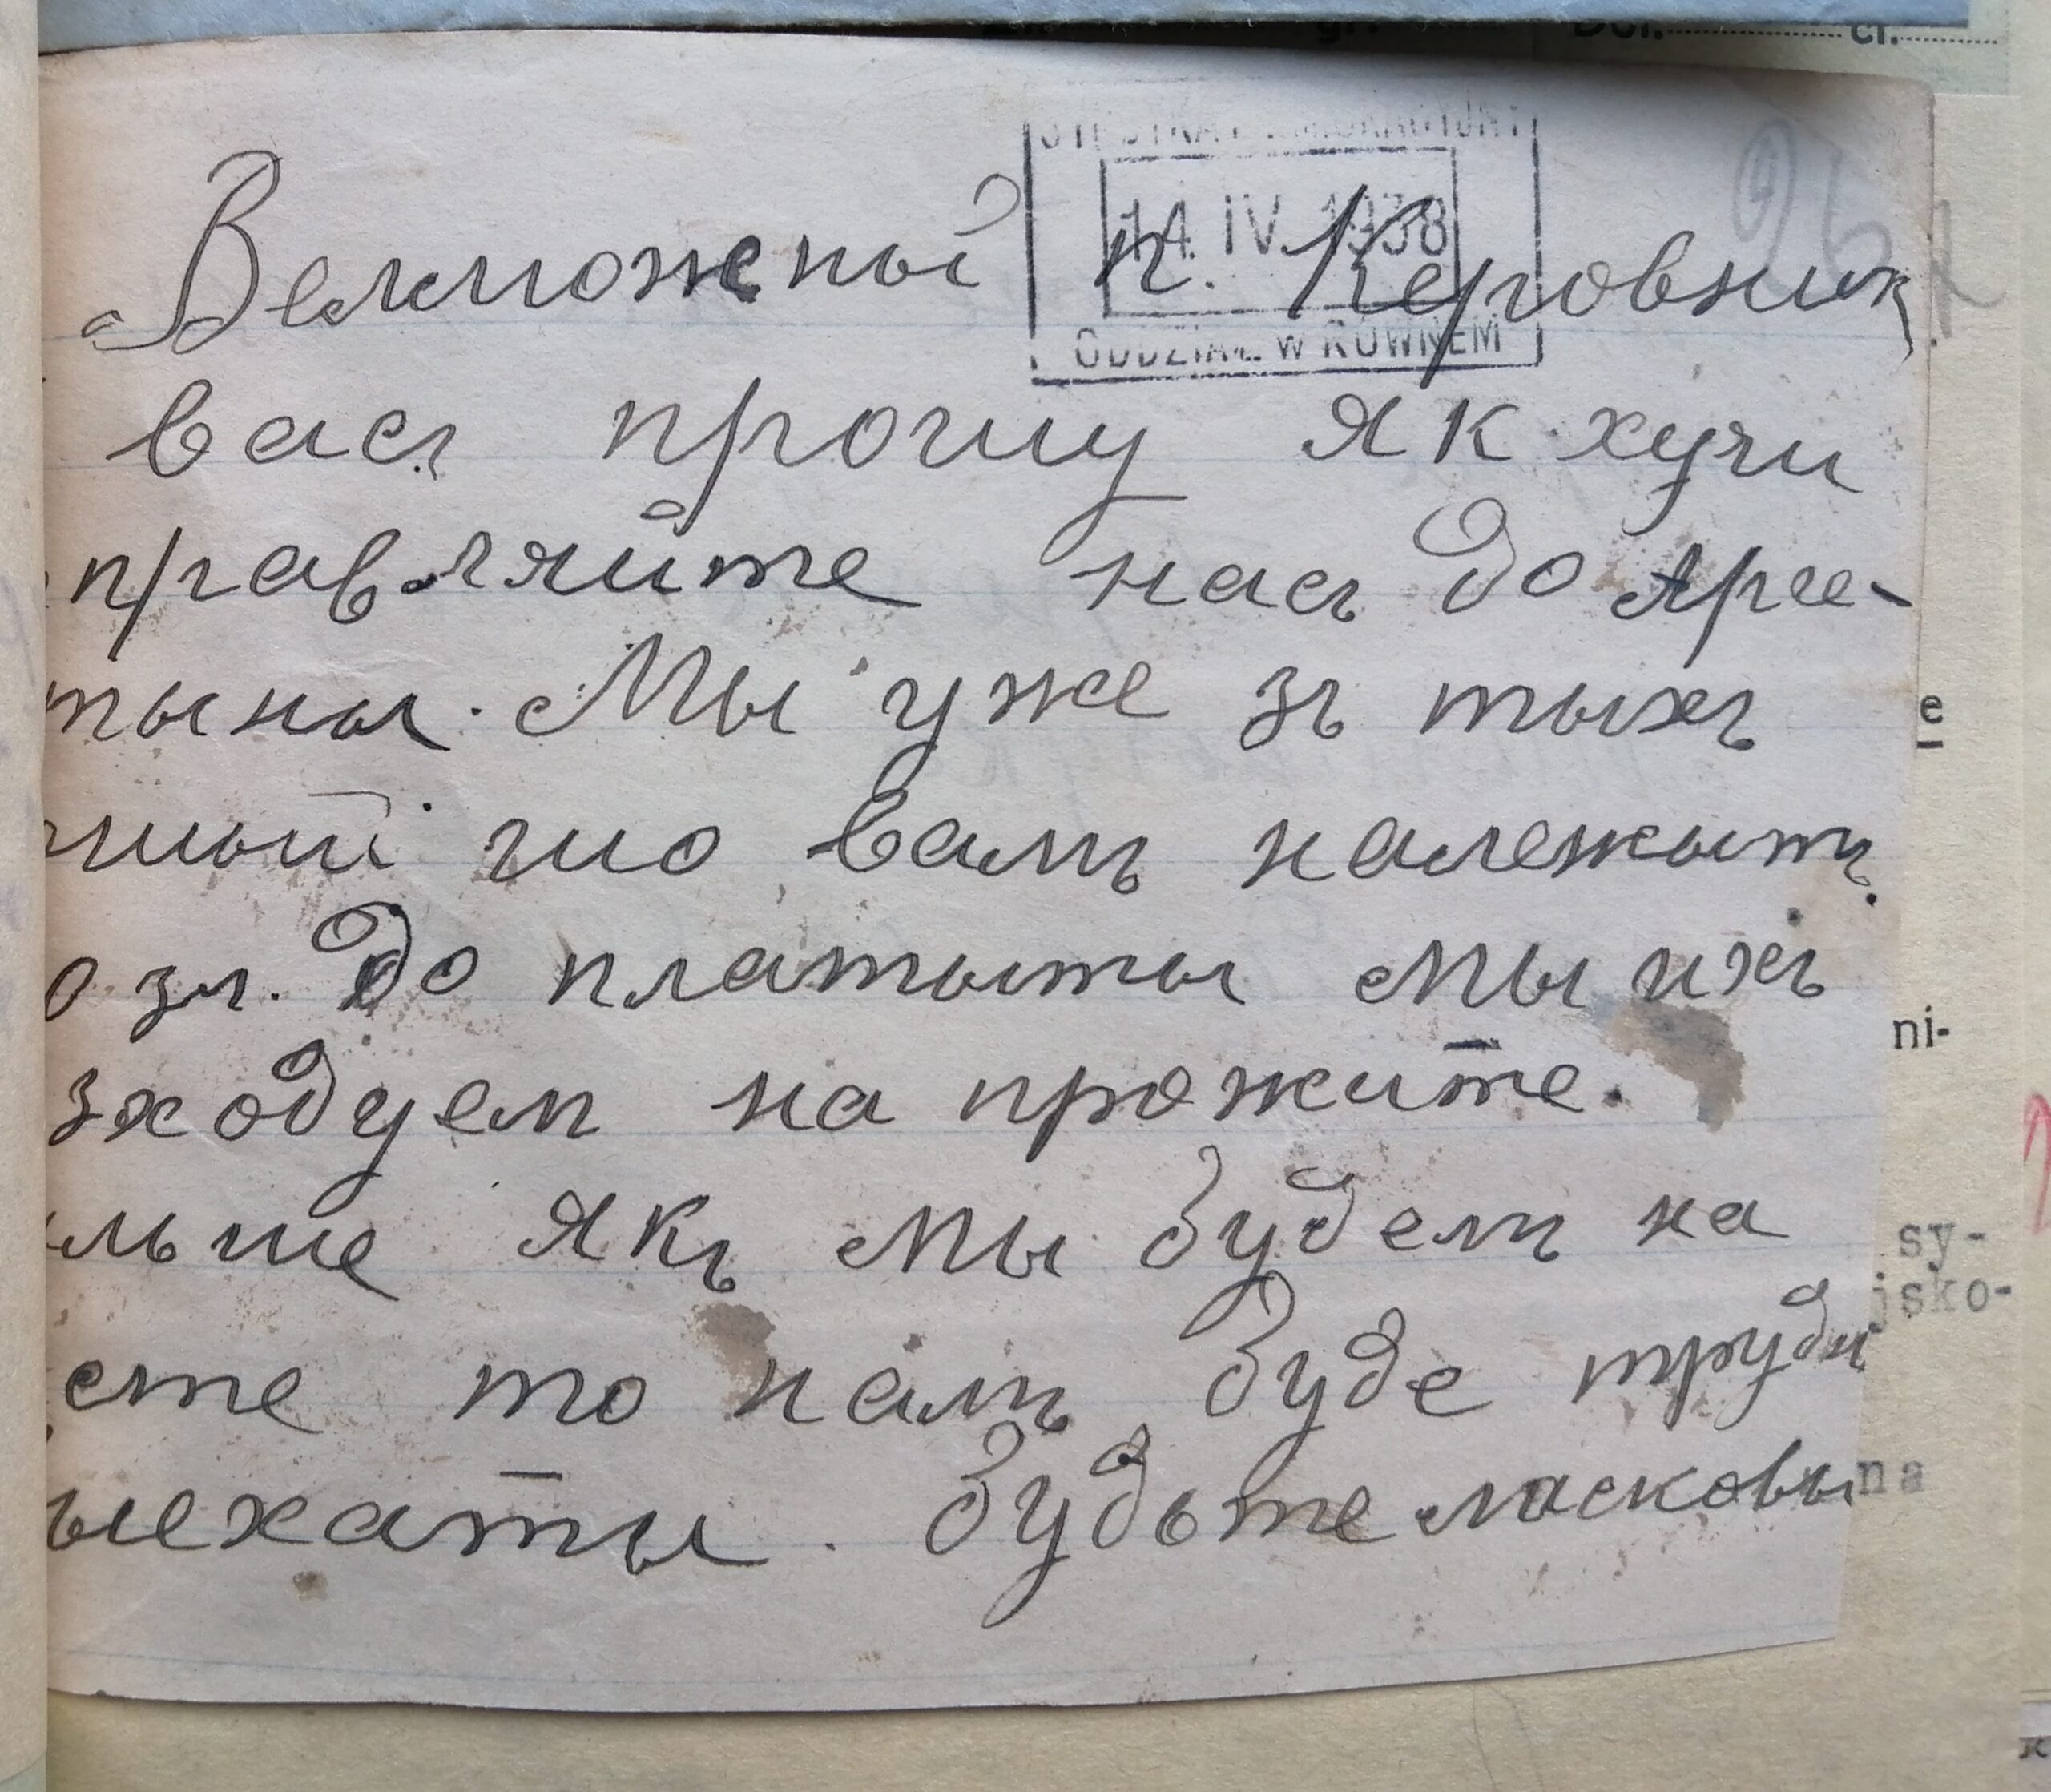 Велможеный п. Керовник
васъ прошу як хучи
правляйте насъ до Арге-
тыны. Мы уже зъ тыхъ
шо вамъ належыть.
0 зл. до платыты мы ихъ
зходуем на прожите.
льше якъ мы будемъ на
сте то намъ буде трудн
ыехаты. Будьте ласковы
14. IV. 1938
ODDZIAŁ W RÓWNEM
Dol. ct.
gr.
e
ni-
sy-
jsko-
na